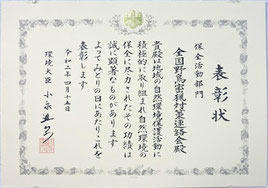 表彰状
保全活動部門
全国野鳥密猟対策連絡会殿
貴殿は地域の自然環境保護活動に
積極的に取り組まれ自然環境の
保全に尽力されたその功績は
誠に顕著なものがあります
よってみどりの日にあたりこれを
表彰します
令和二年四月十五日
環境大臣 小泉進次郎